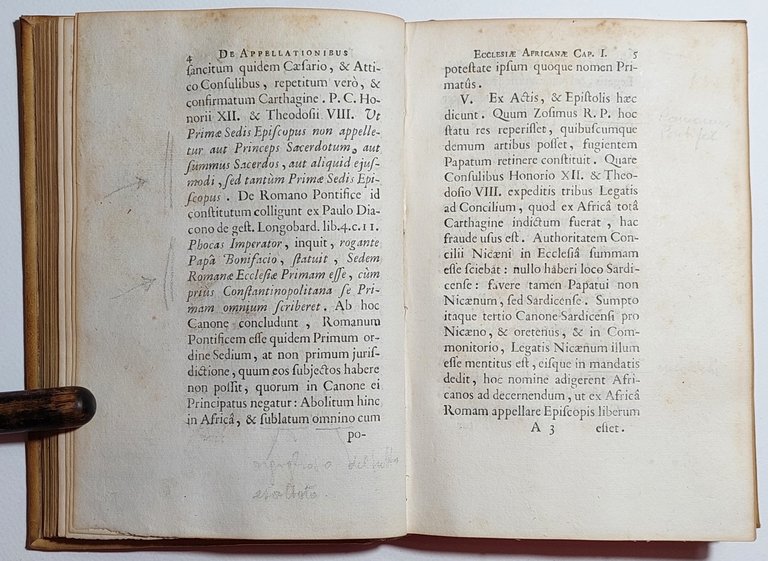 4 DE APPELLATIONIBUS
ſancitum quidem Cæſario, & Atti-
co Conſulibus, repetitum verò, &
confirmatum Carthagine. P. C. Ho-
norii XII. & Theodoſii VIII. Ut
Primæ Sedis Epiſcopus non appelle-
tur aut Princeps Sacerdotum, aut
ſummus Sacerdos, aut aliquid ejuſ-
modi, ſed tantùm Primæ Sedis Epi-
ſcopus. De Romano Pontifice id
conſtitutum colligunt ex Paulo Dia-
cono de geſt. Longobard. lib. 4. c. 11.
Phocas Imperator, inquit, rogante
Papâ Bonifacio, ſtatuit, Sedem
Romanæ Eccleſiæ Primam eſſe, cùm
priùs Conſtantinopolitana ſe Pri-
mam omnium ſcriberet. Ab hoc
Canone concludunt, Romanum
Pontificem eſſe quidem Primum or-
dine Sedium, at non primum juriſ-
dictione, quum eos ſubjectos habere
non poſſit, quorum in Canone ei
Principatus negatur: Abolitum hinc
in Africâ, & ſublatum omnino cum
po-
ECCLESIÆ AFRICANÆ CAP. I. 5
poteſtate ipſum quoque nomen Pri-
matûs.
V. Ex Actis, & Epiſtolis hæc
dicunt. Quum Zoſimus R. P. hoc
ſtatu res reperiſſet, quibuſcumque
demum artibus poſſet, fugientem
Papatum retinere conſtituit. Quare
Conſulibus Honorio XII. & Theo-
doſio VIII. expeditis tribus Legatis
ad Concilium, quod ex Africâ totâ
Carthagine indictum fuerat, hac
fraude uſus eſt. Authoritatem Con-
cilii Nicæni in Eccleſiâ ſummam
eſſe ſciebat: nullo haberi loco Sardi-
cenſe: favere tamen Papatui non
Nicænum, ſed Sardicenſe. Sumpto
itaque tertio Canone Sardicenſi pro
Nicæno, & oretenus, & in Com-
monitorio, Legatis Nicænum illum
eſſe mentitus eſt, eiſque in mandatis
dedit, hoc nomine adigerent Afri-
canos ad decernendum, ut ex Africâ
Romam appellare Epiſcopis liberum
A 3 eſſet.